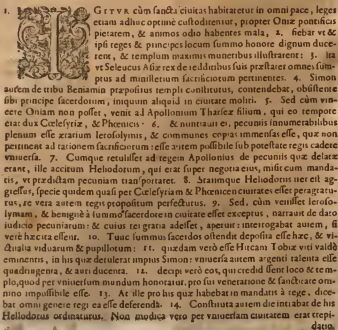 1. IGITVR cùm sancta ciuitas habitaretur in omni pace, leges
etiam adhuc optimè custodirentur, propter Oniæ pontificis
pietatem, & animos odio habentes mala, 2. fiebat vt &
ipsi reges & principes locum summo honore dignum duce-
rent, & templum maximis muneribus illustrarent: 3. Ita
vt Seleucus Asiæ rex de redditibus suis præstaret omnes sum-
ptus ad ministerium sacrificiorum pertinentes. 4. Simon
autem de tribu Beniamin præpositus templi constitutus, contendebat, obsistente
sibi principe sacerdotum, iniquum aliquid in ciuitate moliri. 5. Sed cùm vin-
cere Oniam non posset, venit ad Apollonium Tharsææ filium, qui eo tempore
erat dux Cœlesyriæ, & Phœnicis. 6. & nuntiauit ei, pecuniis innumerabilibus
plenum esse ærarium Ierosolymis, & communes copias immensas esse, quæ non
pertinent ad rationem sacrificiorum: esse autem possibile sub potestate regis cadere
vniuersa. 7. Cumque retulisset ad regem Apollonius de pecuniis quæ delatæ
erant, ille accitum Heliodorum, qui erat super negotia eius, misit cum manda-
tis, vt prædictam pecuniam transportaret. 8. Statimque Heliodorus iter est ag-
gressus, specie quidem quasi per Cœlesyriam & Phœnicen ciuitates esset peragratu-
rus, re vera autem regis propositum perfecturus. 9. Sed, cùm venisset Ieroso-
lymam, & benignè à summo sacerdote in ciuitate esset exceptus, narrauit de dato
indicio pecuniarum: & cuius rei gratia adesset, aperuit: interrogabat autem, si
verè hæc ita essent. 10. Tunc summus sacerdos ostendit deposita esse hæc, & vi-
ctualia viduarum & pupillorum: 11. quædam verò esse Hircani Tobiæ viri valdè
eminentis, in his quæ detulerat impius Simon: vniuersa autem argenti talenta esse
quadringenta, & auri ducenta. 12. decipi verò eos, qui credidissent loco & tem-
plo, quod per vniuersum mundum honoratur, pro sui veneratione & sanctitate om-
nino impossibile esse. 13. At ille pro his quæ habebat in mandatis à rege, dice-
bat omni genere regi ea esse deferenda. 14. Constituta autem die intrabat de his
Heliodorus ordinaturus. Non modica verò per vniuersam ciuitatem erat trepi-
datio.